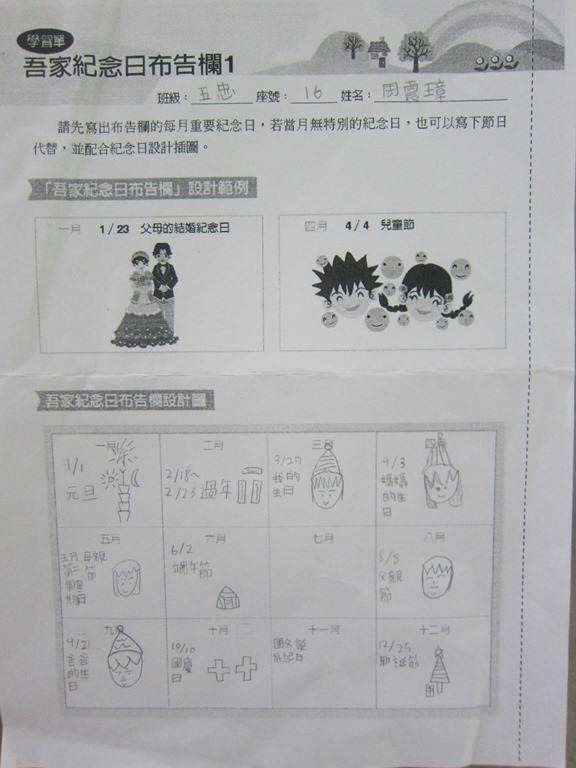 學習單
吾家紀念日布告欄1
班級：五忠 座號：16 姓名：周震璋
請先寫出布告欄的每月重要紀念日，若當月無特別的紀念日，也可以寫下節日
代替，並配合紀念日設計插圖。
「吾家紀念日布告欄」設計範例
一月 1/23 父母的結婚紀念日
四月 4/4 兒童節
吾家紀念日布告欄設計圖
一月
1/1
元旦
二月
2/18～
2/23 過年
三月
3/27
我的
生日
四月
4/3
媽媽
的生
日
五月
五月 母親
第二 節
個星
期日
六月
6/2
端午節
七月
八月
8/8
父親
節
九月
9/21
爸爸
的生
日
十月
10/10
國慶
日
十一月
國父誕
辰紀日
十二月
12/25
耶誕節